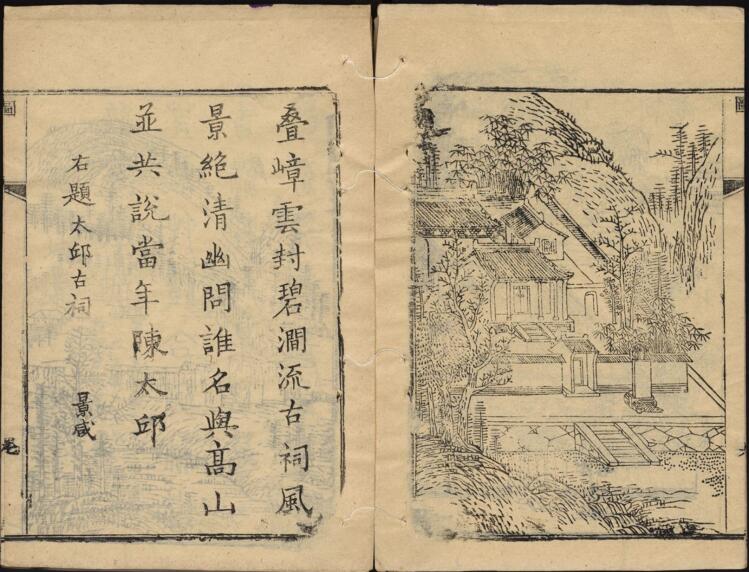 圖
疊嶂雲封碧澗流古祠風
景絕清幽問誰名與高山
並共說當年陳太邱
右題太邱古祠
景咸
圖
卷